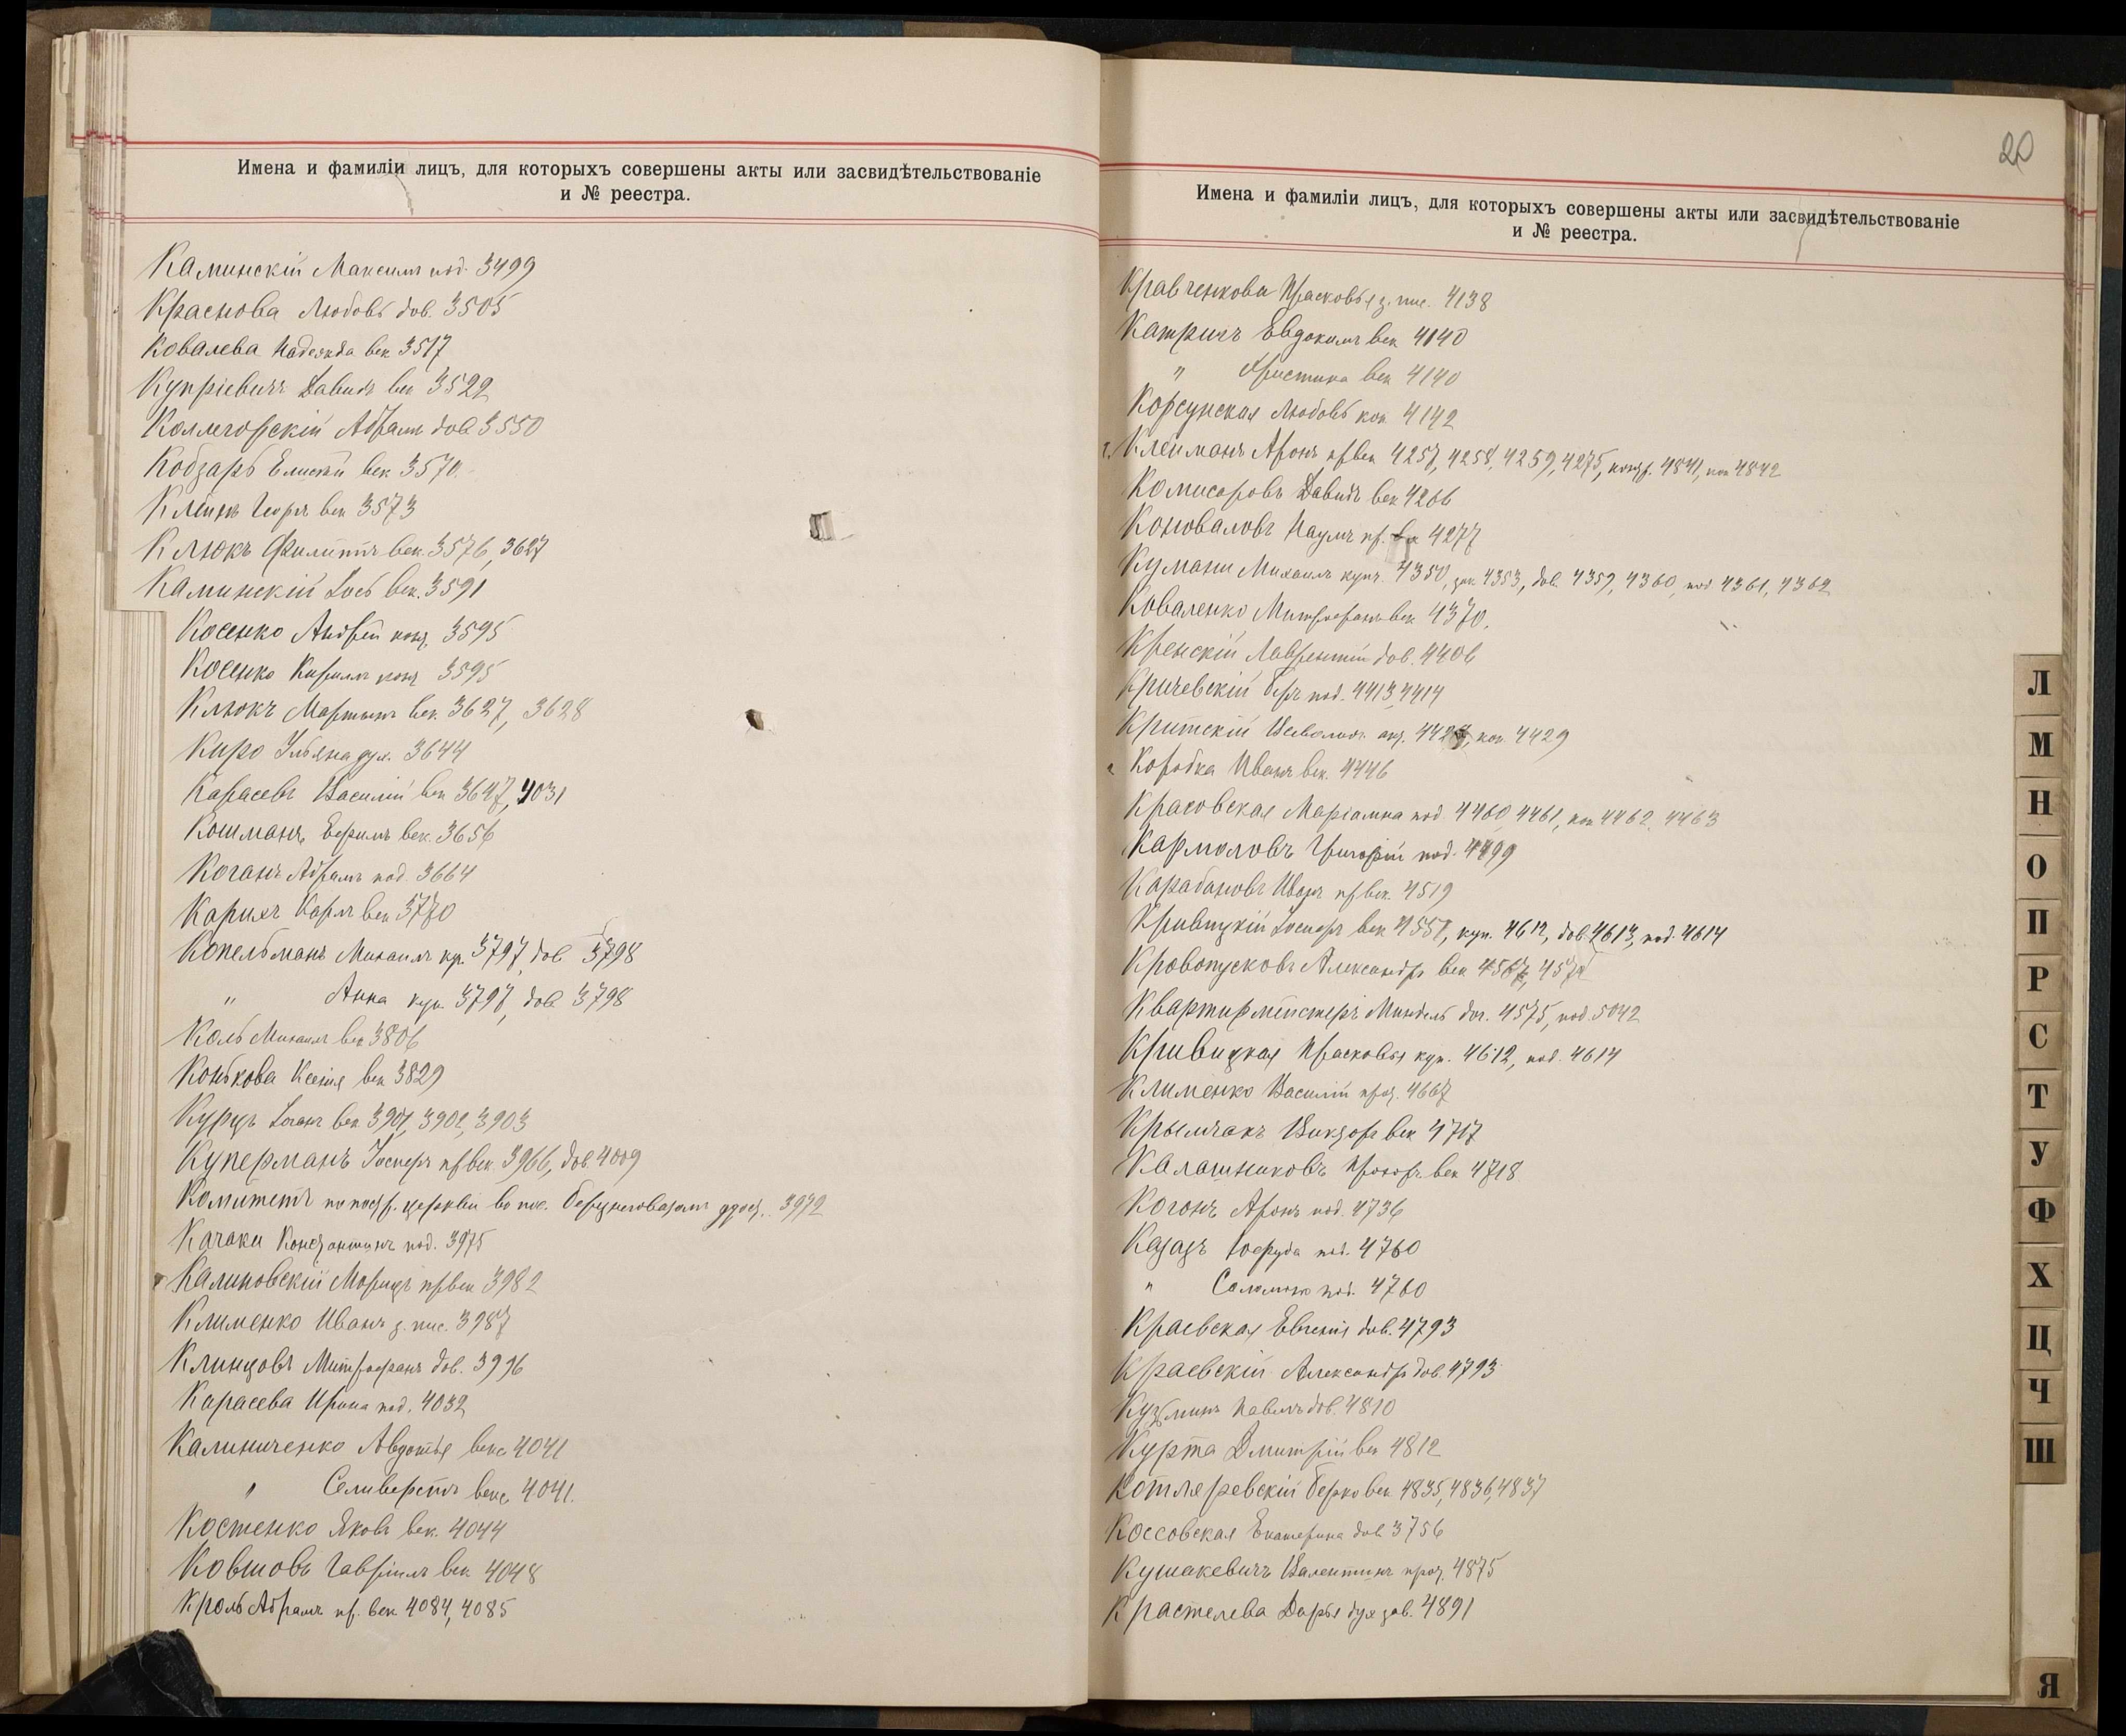 Имена и фамиліи лицъ, для которыхъ совершены акты или засвидѣтельствованіе
и № реестра.
Каминскій Максимъ под. 3499
Краснова Любовь дов. 3505
Ковалева Надежда век 3517
Купріевичъ Давидъ век 3522
Коллегорскій Абрамъ дов. 3550
Кобзарь Елисей век 3570
Клейнъ Георгъ век 3573
Клюкъ Филиппъ век. 3576, 3627
Каминскій Іось век. 3591
Косенко Андрей 3595
Косенко Кирилъ 3595
Клюкъ Мартынъ век. 3627, 3628
Киро Ульяна дух. 3644
Карасевъ Василій век 3647, 4031
Кошманъ Ефимъ век. 3656
Коганъ Абрамъ под. 3664
Карихъ Карлъ век 3770
Копельманъ Михаилъ кр. 3797, дов 3798
" Анна куп. 3797, дов. 3798
Коль Михаилъ век 3806
Конькова Ксенія век 3829
Курцъ Іоганъ век 3901, 3902, 3903
Куперманъ Іосифъ пр век. 3966, дов. 4009
Комитетъ по постр. церквей во пос. 3972
Качаки Константинъ под. 3975
Калиновскій Морицъ пр век 3982
Клименко Иванъ з. пис. 3987
Клинцовъ Митрофанъ дов. 3996
Карасева Ирина под. 4032
Калиниченко Авдотья векс 4041
" Селиверстъ векс 4041.
Костенко Яковъ век. 4044
Ковшовъ Гавріилъ век 4048
Кроль Абрамъ пр. век 4084, 4085
20
Имена и фамиліи лицъ, для которыхъ совершены акты или засвидѣтельствованіе
и № реестра.
Кравченкова Прасковья з. пис. 4138
Катричъ Евдокимъ век 4140
" Христина век 4140
Корсунская Любовь коп 4142
Клейманъ Аронъ пр век 4257, 4258, 4259, 4275, контр. 4841, коп 4842
Комисоровъ Давидъ век 4266
Коноваловъ Наумъ пр. век 4277
Кумани Михаилъ купч. 4350, зак. 4353, дов. 4359, 4360, под 4361, 4362
Коваленко Митрофанъ век 4370.
Кренскій Лаврентій дов. 4406
Кричевскій Беръ под. 4413, 4414
Критскій Всеволодъ коп. 4429
Коробка Иванъ век. 4446
Краковская Маріамна под. 4460, 4461, коп 4462, 4463
Кармоловъ Григорій под. 4499
Карабановъ Иванъ пр век. 4519
Кривицкій Іосифъ век 4551, куп. 4612, дов. 4613, под. 4614
Кровопусковъ Александръ век
Квартирмейстеръ Миндель дог. 4575, под. 5042
Кривицкая Прасковья куп. 4612, под. 4614
Клименко Василій прот. 4667
Крымчакъ Викторъ век 4717
Калашниковъ Прокофъ. век 4718
Когонъ Аронъ под. 4736
Казазъ Іосфуда под. 4760
" Саломонъ под. 4760
Краевская Евгенія дов. 4793
Краевскій Александръ дов. 4793
Кузьминъ Павелъ дов. 4810
Курта Дмитрій век 4812
Котляревскій Берко век 4835, 4836, 4837
Коссовская Екатерина дов 3756
Кушакевичъ Валентинъ прот. 4875
Крастелева Дарья дух зав. 4891
Л
М
Н
О
П
Р
С
Т
У
Ф
Х
Ц
Ч
Ш
Я